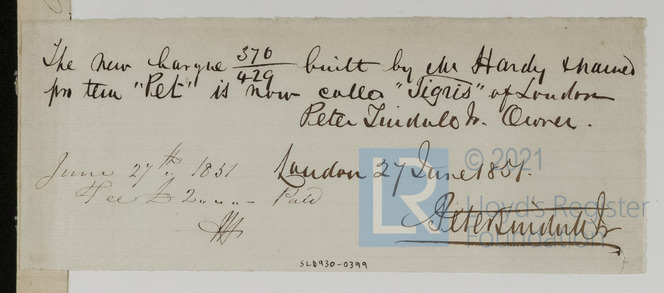 The new barque 370/429 built by Mr Hardy & named
pro tem "Pet" is now called "Tigris" of London
Peter Tindall Jr. Owner.
June 27th 1851 London 27 June 1851.
Fee £ 2 „ „ – Paid
Peter Tindall Jr
© 2021
Lloyd's Register
Foundation
LR
SLD930-0399